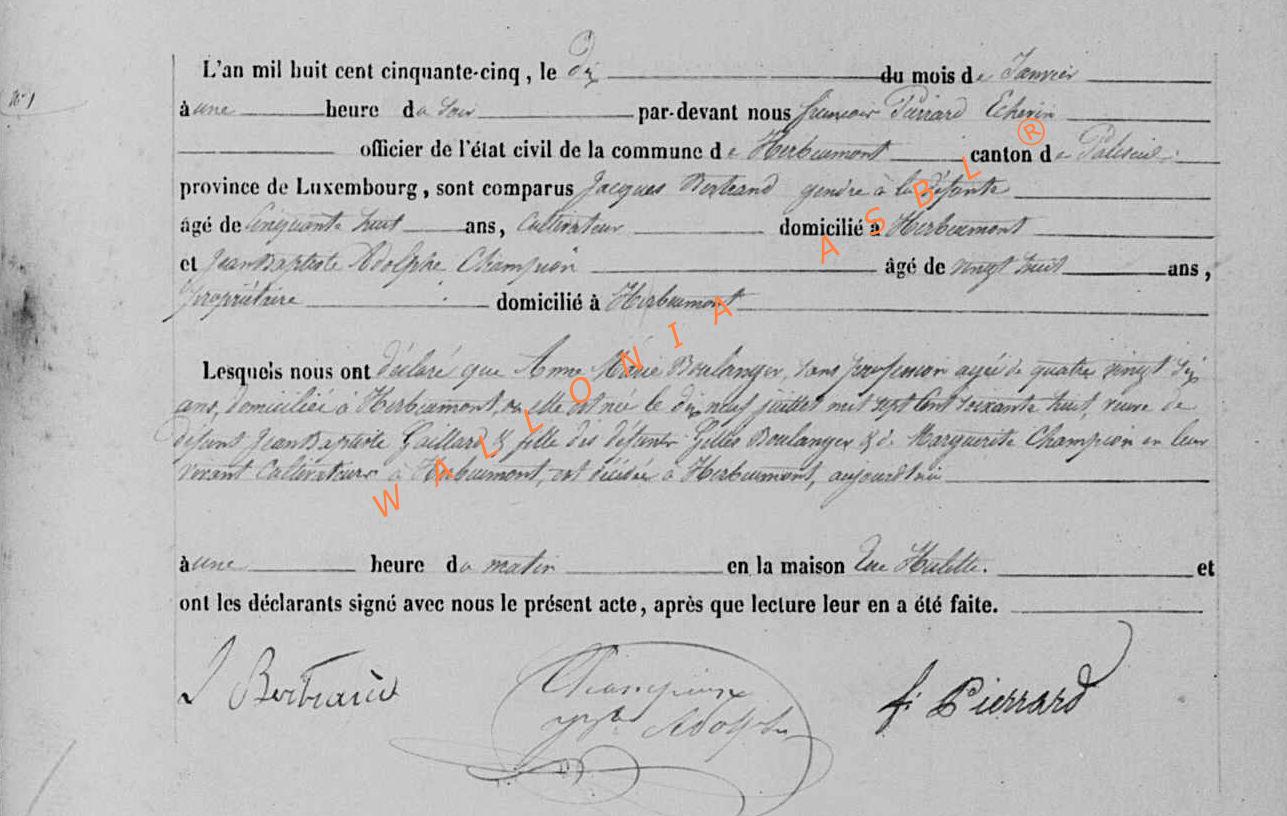 L'an mil huit cent cinquante-cinq, le dix du mois de Janvier
N° 1
à une heure du soir par-devant nous francois Pierrard Echevin
officier de l'état civil de la commune de Herbeumont canton de Paliseul
province de Luxembourg, sont comparus Jacques Bertrand gendre à la défunte
âgé de Cinquante huit ans, Cultivateur domicilié à Herbeumont
et Jean Baptiste Adolphe Champion âgé de vingt huit ans,
propriétaire domicilié à Herbeumont
Lesquels nous ont déclaré que Anne Marie Boulanger, sans profession agée de quatre vingt dix
ans, domiciliée à Herbeumont, où elle est née le dix neuf juillet mil sept Cent soixante huit, veuve de
défunt Jean Baptiste Gaillard & fille des défunts Gilles Boulanger & de Marguerite Champion en leur
vivant Cultivateurs à Herbeumont, est décédée à Herbeumont, aujourd'hui
à une heure du matin en la maison Rue Hulette. et
ont les déclarants signé avec nous le présent acte, après que lecture leur en a été faite.
J Bertrand
Champion
Adolphe
f: Pierrard
WALLONIA ASBL ®